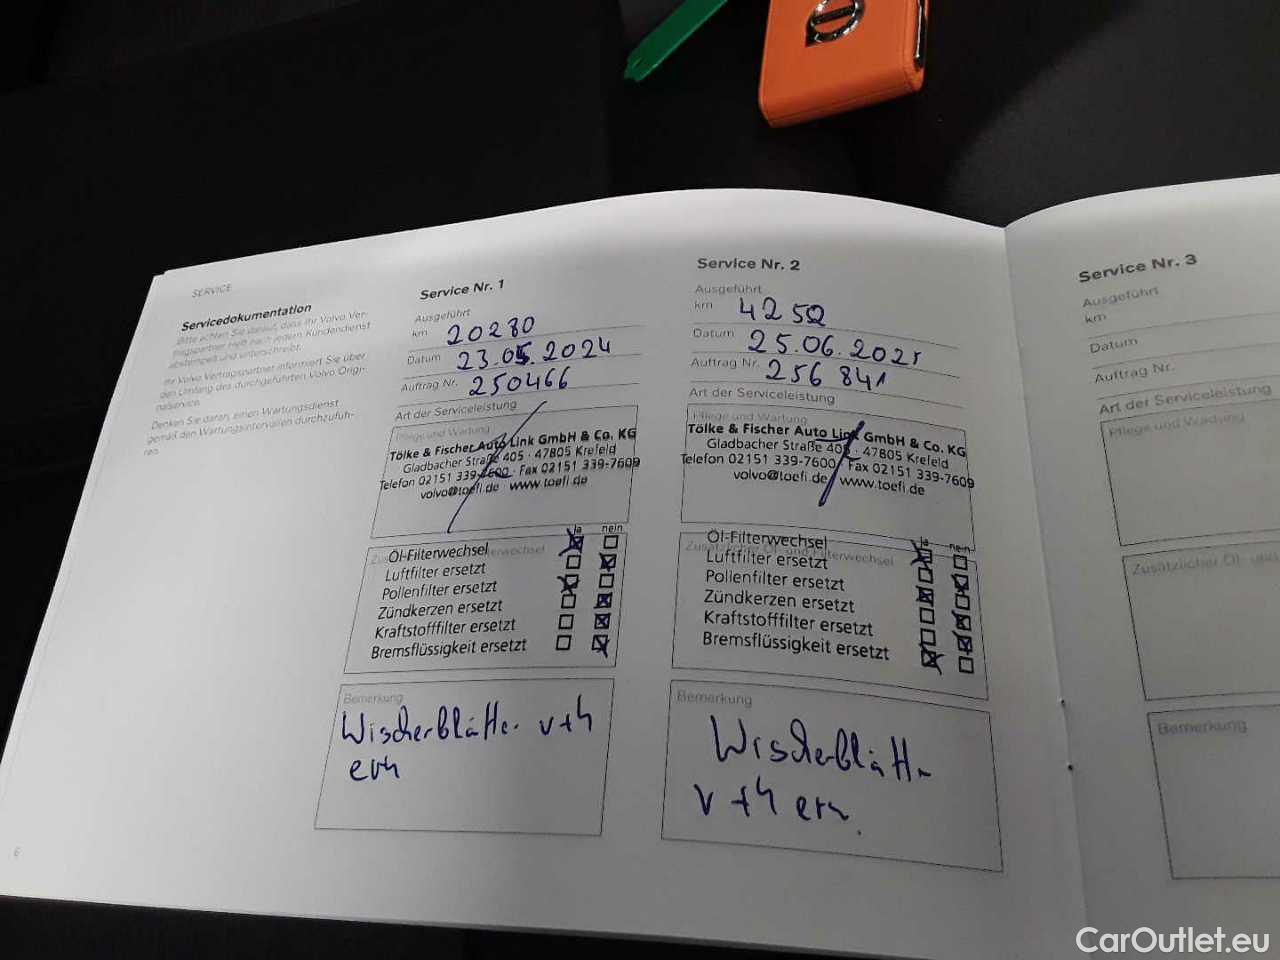 SERVICE
Servicedokumentation
Bitte achten Sie darauf, dass Ihr Volvo Ver-
tragspartner Heft nach jedem Kundendienst
abstempelt und unterschreibt.
Ihr Volvo Vertragspartner informiert Sie über
den Umfang des durchgeführten Volvo Origi-
nalservice.
Denken Sie daran, einen Wartungsdienst
gemäß den Wartungsintervallen durchzufüh-
ren.
6
Service Nr. 1
Ausgeführt
km 20280
Datum 23.05.2024
Auftrag Nr. 250466
Art der Serviceleistung
Pflege und Wartung
Tölke & Fischer Auto Link GmbH & Co. KG
Gladbacher Straße 405 · 47805 Krefeld
Telefon 02151 339-7600 · Fax 02151 339-7609
volvo@toefi.de · www.toefi.de
ja nein
Öl-Filterwechsel
Luftfilter ersetzt
Pollenfilter ersetzt
Zündkerzen ersetzt
Kraftstofffilter ersetzt
Bremsflüssigkeit ersetzt
Bemerkung
Wischerblätter v+h
ern
Service Nr. 2
Ausgeführt
km 4252
Datum 25.06.2025
Auftrag Nr. 256841
Art der Serviceleistung
Pflege und Wartung
Tölke & Fischer Auto Link GmbH & Co. KG
Gladbacher Straße 405 · 47805 Krefeld
Telefon 02151 339-7600 · Fax 02151 339-7609
volvo@toefi.de · www.toefi.de
ja nein
Zusätzlicher Öl- und Filterwechsel
Öl-Filterwechsel
Luftfilter ersetzt
Pollenfilter ersetzt
Zündkerzen ersetzt
Kraftstofffilter ersetzt
Bremsflüssigkeit ersetzt
Bemerkung
Wischerblätter
v+h ern.
Service Nr. 3
Ausgeführt
km
Datum
Auftrag Nr.
Art der Serviceleistung
Pflege und Wartung
Zusätzlicher Öl- und
Bemerkung
CarOutlet.eu